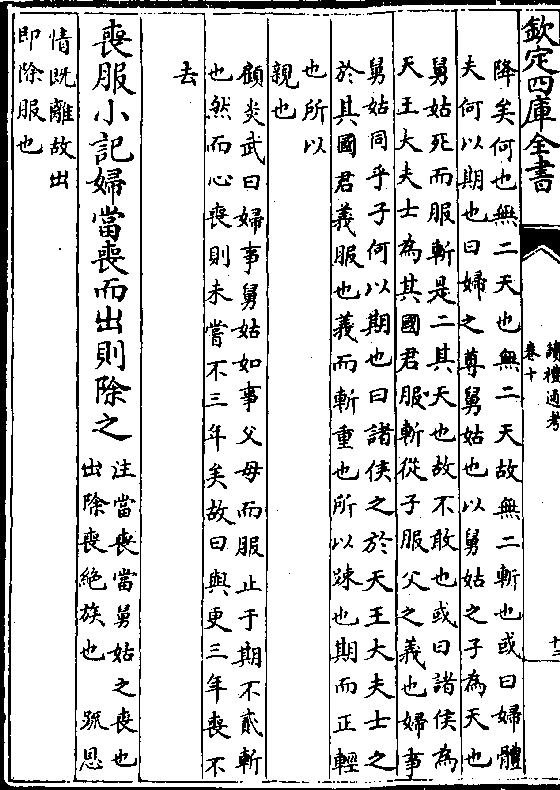 欽定四庫全書
讀禮通考
卷十
十三
降矣何也無二天也無二天故無二斬也或曰婦體
夫何以期也曰婦之尊舅姑也以舅姑之子為天也
舅姑死而服斬是二其天也故不敢也或曰諸侯為
天王大夫士為其國君服斬從子服父之義也婦事
舅姑同乎子何以期也曰諸侯之於天王大夫士之
於其國君義服也義而斬重也所以踈也期而正輕
也所以
親也
顧炎武曰婦事舅姑如事父母而服止于期不貳斬
也然而心喪則未嘗不三年矣故曰與更三年喪不
去
喪服小記婦當喪而出則除之
注當喪當舅姑之喪也
出除喪絶族也 疏恩
情既離故出
即除服也